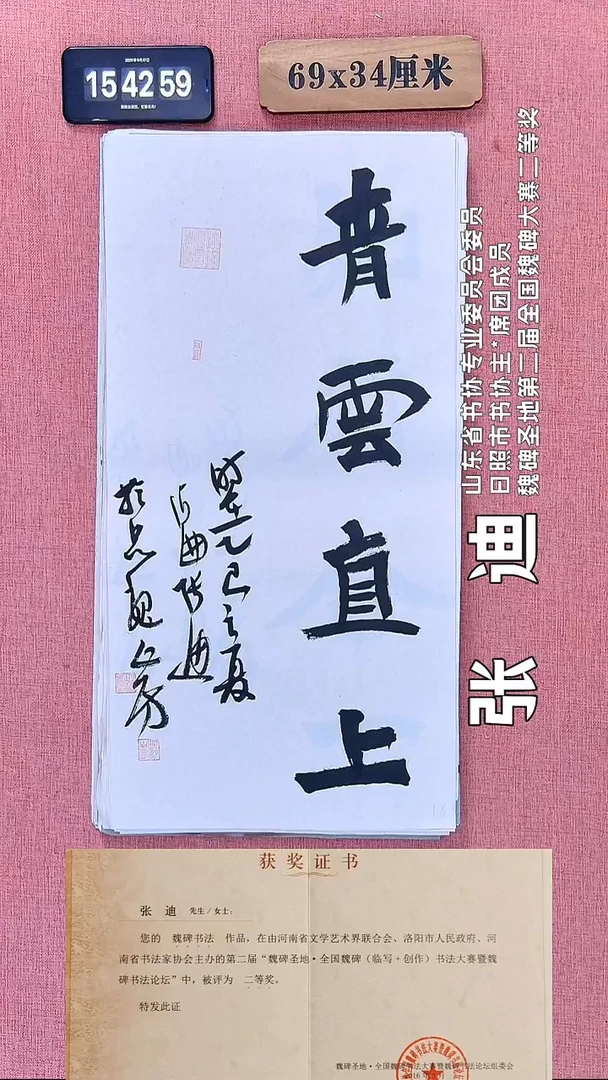 15 42 59
69x34厘米
青雲直上
时在乙巳之夏
海曲张迪
山东省书协专业委员会委员
日照市书协主*席团成员
魏碑圣地第二届全国魏碑大赛二等奖
张 迪
获奖证书
张 迪 先生/女士:
您的 魏碑书法 作品,在由河南省文学艺术界联合会、洛阳市人民政府、河
南省书法家协会主办的第二届“魏碑圣地·全国魏碑(临写+创作)书法大赛暨魏
碑书法论坛”中,被评为 二等奖。
特发此证
魏碑圣地·全国魏碑书法大赛暨魏碑书法论坛组委会